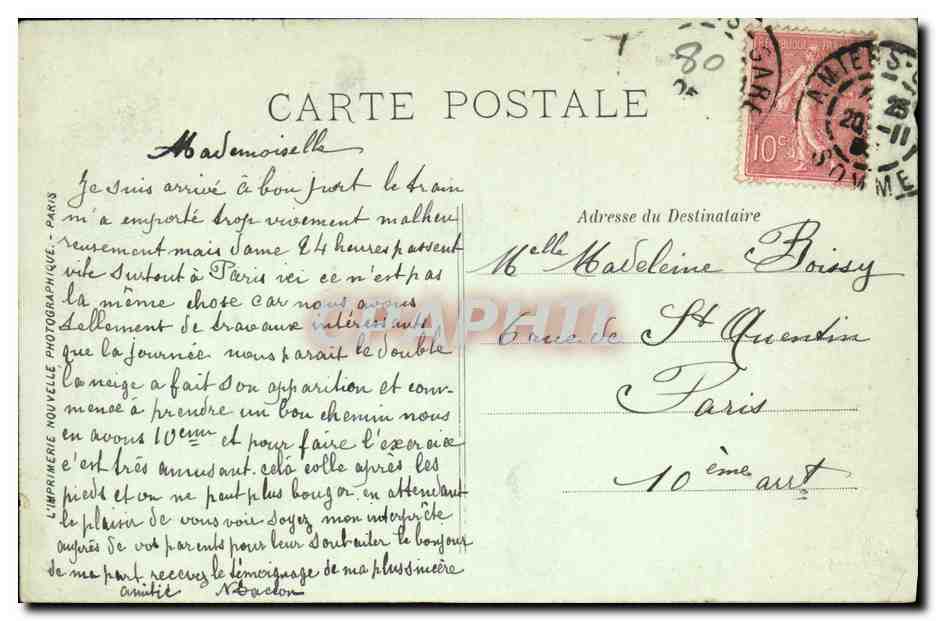 CARTE POSTALE
80
RÉPUBLIQUE FRANÇAISE
10c
GARE
AMIENS
25
20 -11
SOMME
L'IMPRIMERIE NOUVELLE PHOTOGRAPHIQUE. - PARIS
Mademoiselle
Je suis arrivé à bon port le train
m'a emporté trop vivement malheu
reusement mais dame 24 heures passent
vite surtout à Paris ici ce n'est pas
la même chose car nous avons
tellement de travaux intéressants
que la journée nous parait le double
la neige a fait son apparition et com-
mence à prendre un bon chemin nous
en avons 10cm et pour faire l'exercice
c'est très amusant celà colle après les
pieds et on ne peut plus bouger en attendant
le plaisir de vous voir soyez mon interprète
auprès de vos parents pour leur souhaiter le bonjour
de ma part recevez le témoignage de ma plus sincère
amitié
Adresse du Destinataire
Melle Madeleine Boissy
6 rue de St Quentin
Paris
10ème arrt
CPAPHIL